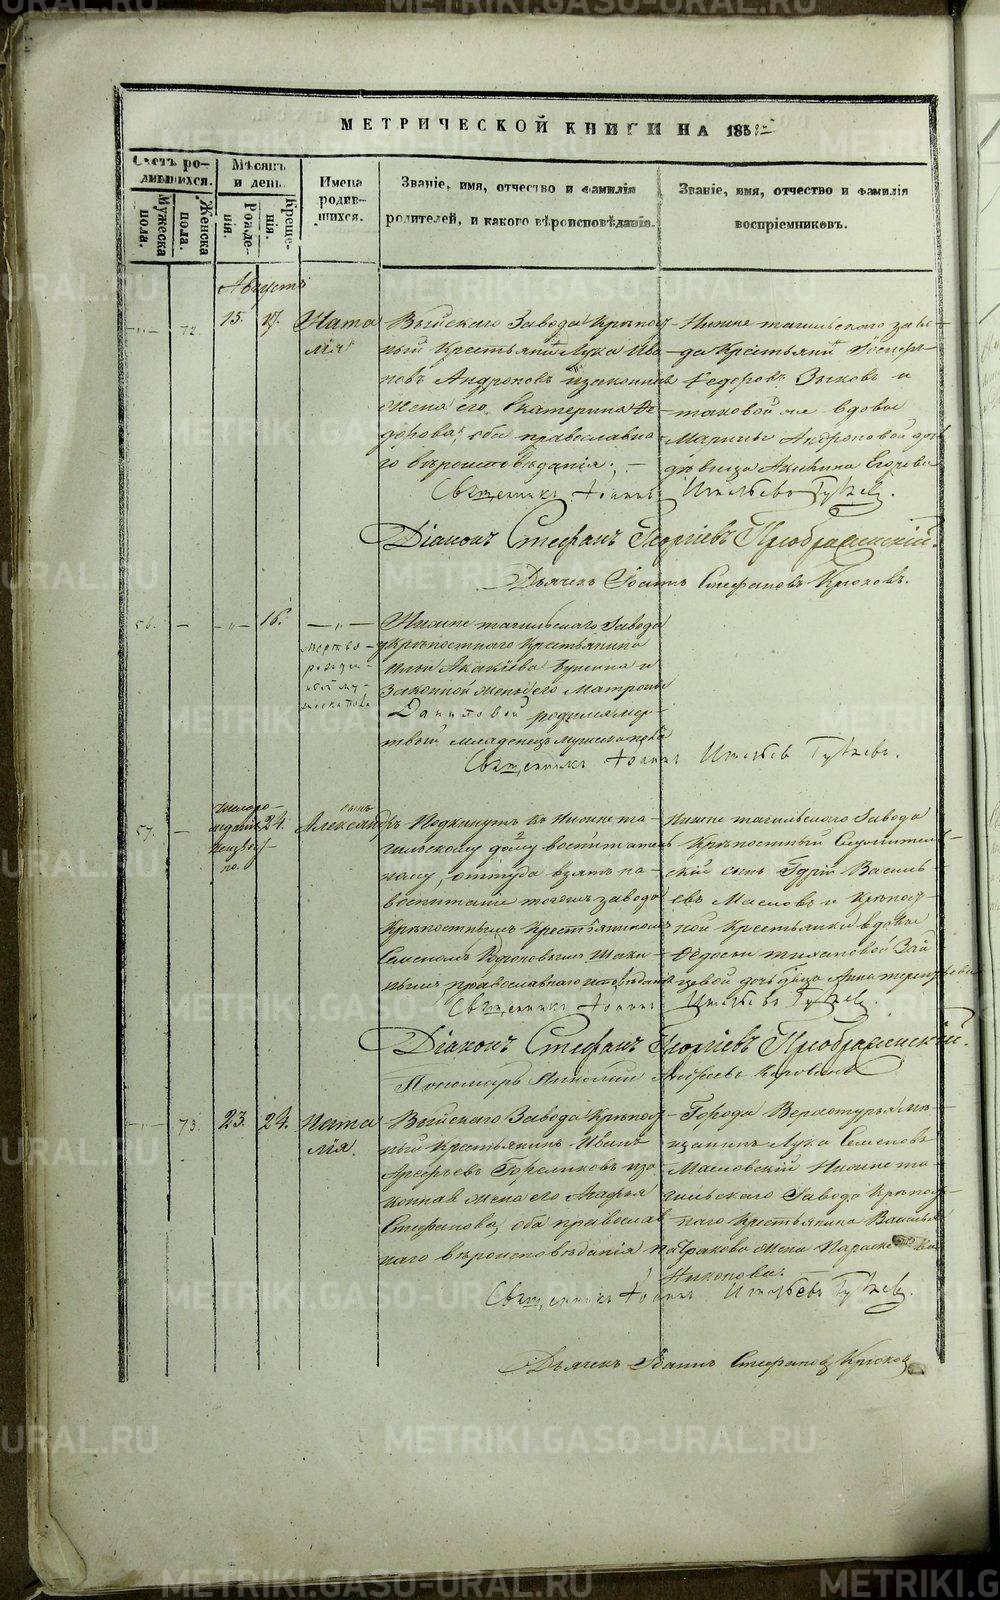 МЕТРИЧЕСКОЙ КНИГИ НА 1858
Счетъ ро-
дившихся.
Мужеска пола.
Женска пола.
Мѣсяцъ
и день.
Рожде-
нія.
Креще-
нія.
Имена
родив-
шихся.
Званіе, имя, отчество и фамилія
родителей, и какого вѣроисповѣданія.
Званіе, имя, отчество и фамилія
воспріемниковъ.
Августъ
72. 15. 17.
Ната
лія
Выйскаго Завода Крѣпост
ный Крестьянинъ Лука Ива
новъ Андроновъ и законная
жена его Екатерина Фе
дорова, оба православна
го вѣроисповѣданія.
Нижне тагильскаго заво-
да Крестьянинъ
Федоровъ Зыковъ и
таковой же вдовы
Марины Андроновой дочь
дѣвица Акилина Егорова
Священникъ Іоаннъ
Діаконъ Стефанъ Георгіевъ Преображенскій.
Дьячекъ Іоаннъ Стефановъ Крюковъ.
56. — 16.
Мертво-
рожден-
ный му-
жеска пола
Нижне тагильскаго Завода
Крѣпостнаго Крестьянина
Ильи Акакіева и
Законной жены его Матроны
Даниловой родился мер-
твый младенецъ мужеска пола
Священникъ Іоаннъ
57. —
Число ро-
жденія
неизвѣст-
но.
24.
Александръ
Подкинутъ въ Нижне та-
гильскому дому воспитатель
ному, оттуда взятъ на
воспитаніе тогожъ завода
Крѣпостнымъ Крестьяниномъ
Семеномъ
нымъ православнаго исповѣданія
Нижне тагильскаго Завода
Крѣпостный Служитель-
скій сынъ Василь
евъ Масловъ и Крѣпост
ной Крестьянки вдовы
Федосьи Тихановой Зай
цевой дочь дѣвица Анна
Священникъ Іоаннъ
Діаконъ Стефанъ Георгіевъ Преображенскій.
Пономарь Николай Андреевъ
73. 23. 24.
Ната
лія.
Выйскаго Завода Крѣпост
ный Крестьянинъ Иванъ
Арефьевъ Гореликовъ и за
конная жена его Агафья
Стефанова, оба православ
наго вѣроисповѣданія
Города Верхотурья мѣ-
щанинъ Лука Семеновъ
Масловскій Нижне та-
гильскаго Завода Крѣпост-
наго Крестьянина Василья
жена Параскева
Никонова.
Священникъ Іоаннъ
Дьячекъ Іоаннъ Стефановъ Крюковъ
METRIKI.GASO-URAL.RU